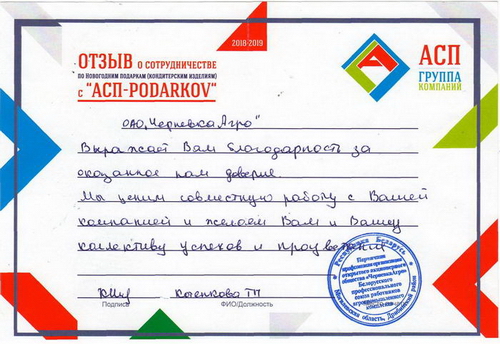 2018-2019
ОТЗЫВ О СОТРУДНИЧЕСТВЕ
ПО НОВОГОДНИМ ПОДАРКАМ (КОНДИТЕРСКИМ ИЗДЕЛИЯМ)
с "АСП-PODARKOV"
АСП
ГРУППА
КОМПАНИЙ
ОАО "Черневка Агро"
Выражает Вам благодарность за
оказанное нам доверие.
Мы ценим совместную работу с Вашей
компанией и желаем Вам и Вашему
коллективу успехов и процветания
Подпись
ФИО/Должность
Республика Беларусь
Первичная
профсоюзная организация
открытого акционерного
общества «ЧерневкаАгро»
Белорусского
профессионального
союза работников
агропромышленного
Могилевская область, Дрибинский район